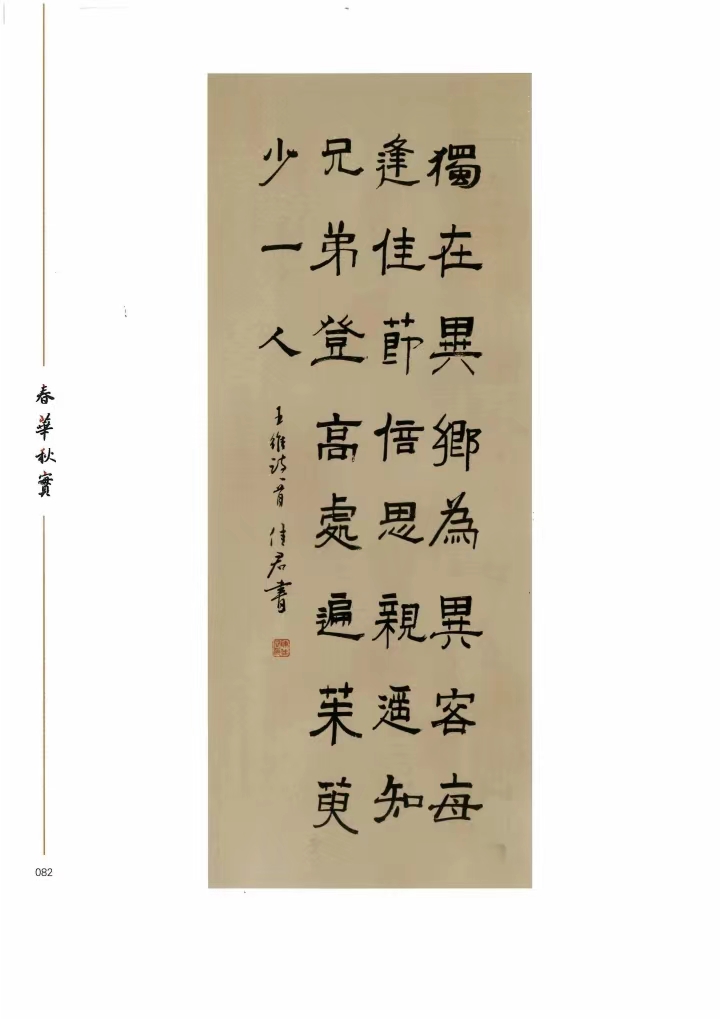 獨在異鄉為異客每
逢佳節倍思親遙知
兄弟登高處遍茱萸
少一人
王維詩一首 佳君書
春華秋實
082